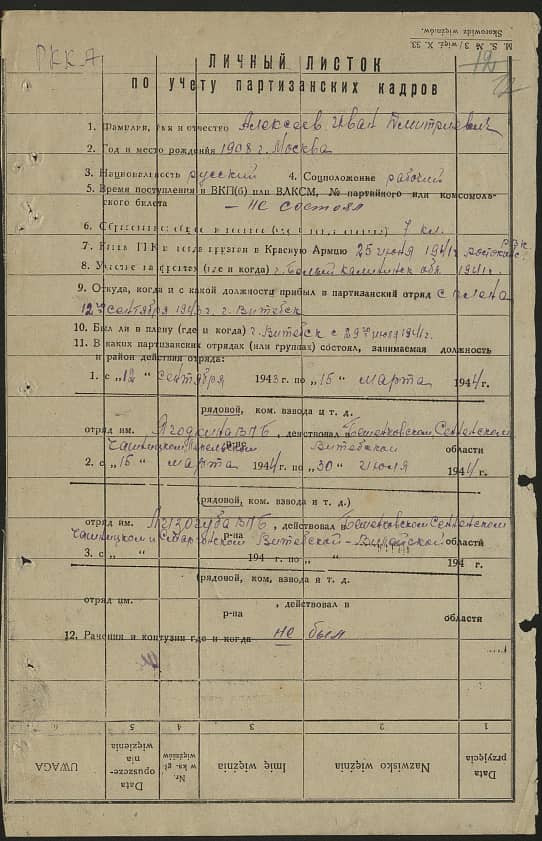 M. S. № 3/więź. X. 33.
Skorowidz więźniów.
РККА
12
12
ЛИЧНЫЙ ЛИСТОК
по учету партизанских кадров
1. Фамилия, имя и отчество Алексеев Иван Дмитриевич
2. Год и место рождения 1908 г. Москва
3. Национальность русский 4. Соцположение рабочий
5. Время поступления в ВКП(б) или ВЛКСМ, № партийного или комсомоль-
ского билета — не состоял
6. Образование 7 кл.
7. Каким РВК и когда призван в Красную Армию 25 июня 1941 г. РВК
8. Участие на фронтах (где и когда) г. Белый Калининск. обл. 1941 г.
9. Откуда, когда и с какой должности прибыл в партизанский отряд с плена
12го сентября 1943 г. г. Витебск
10. Был ли в плену (где и когда) г. Витебск с 29го июля 1941 г.
11. В каких партизанских отрядах (или группах) состоял, занимаемая должность
и район действия отряда:
1. с „12“ сентября 1943 г. по „15“ марта 1944 г.
рядовой, ком. взвода и т. д.
отряд им. ВПБ, действовал в Бешенковском, Сенненском
Чашницком р-на Витебской области
2. с „15“ марта 1944 г. по „30“ июля 1944 г.
(рядовой, ком. взвода и т. д.)
отряд им. ВПБ, действовал в Бешенковском, Сенненском
Чашницком и р-на Витебской - Вилейской области
3. с „ “ 194 г. по „ “ 194 г.
(рядовой, ком. взвода и т. д.
отряд им. , действовал в
р-на области
12. Ранения и контузии где и когда не был
Data przyjęcia
Nazwisko więźnia
Imię więźnia
Nr. w ks. gł. więźniów
Data opuszczenia więzienia
UWAGA
1 2 3 4 5 6